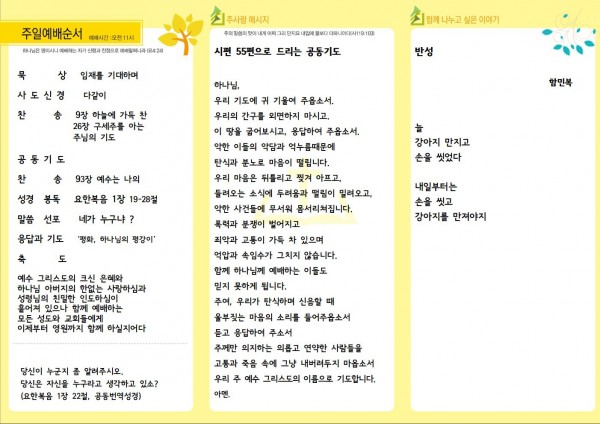 주일예배순서 예배시간 : 오전 11시
하나님은 영이시니 예배하는 자가 신령과 진정으로 예배할찌니라 (요4:24)
묵 상 임재를 기대하며
사 도 신 경 다같이
찬 송 9장 하늘에 가득 찬
26장 구세주를 아는
주님의 기도
공 동 기 도
찬 송 93장 예수는 나의
성경 봉독 요한복음 1장 19-28절
말씀 선포 네가 누구냐 ?
응답과 기도 '평화, 하나님의 평강이'
축 도
예수 그리스도의 크신 은혜와
하나님 아버지의 한없는 사랑하심과
성령님의 친밀한 인도하심이
흩어져 있으나 함께 예배하는
모든 성도와 교회들에게
이제부터 영원까지 함께 하실지어다
당신이 누군지 좀 알려주시오.
당신은 자신을 누구라고 생각하고 있소?
(요한복음 1장 22절, 공동번역성경)
주사랑 메시지
주의 말씀의 맛이 내게 어찌 그리 단지요 내입에 꿀보다 더하니이다(시119:103)
시편 55편으로 드리는 공동기도
하나님,
우리 기도에 귀 기울여 주옵소서.
우리의 간구를 외면하지 마시고.
이 땅을 굽어보시고, 응답하여 주옵소서.
악한 이들의 악담과 억누름때문에
탄식과 분노로 마음이 떨립니다.
우리 마음은 뒤틀리고 찢겨 아프고,
들려오는 소식에 두려움과 떨림이 밀려오고,
악한 사건들에 무서워 몸서리쳐집니다.
폭력과 분쟁이 벌어지고
죄악과 고통이 가득 차 있으며
억압과 속임수가 그치지 않습니다.
함께 하나님께 예배하는 이들도
믿지 못하게 됩니다.
주여, 우리가 탄식하며 신음할 때
울부짖는 마음의 소리를 들어주옵소서
듣고 응답하여 주소서
주께만 의지하는 의롭고 연약한 사람들을
고통과 죽음 속에 그냥 내버려두지 마옵소서
우리 주 예수 그리스도의 이름으로 기도합니다.
아멘.
함께 나누고 싶은 이야기
반성
함민복
늘
강아지 만지고
손을 씻었다
내일부터는
손을 씻고
강아지를 만져야지